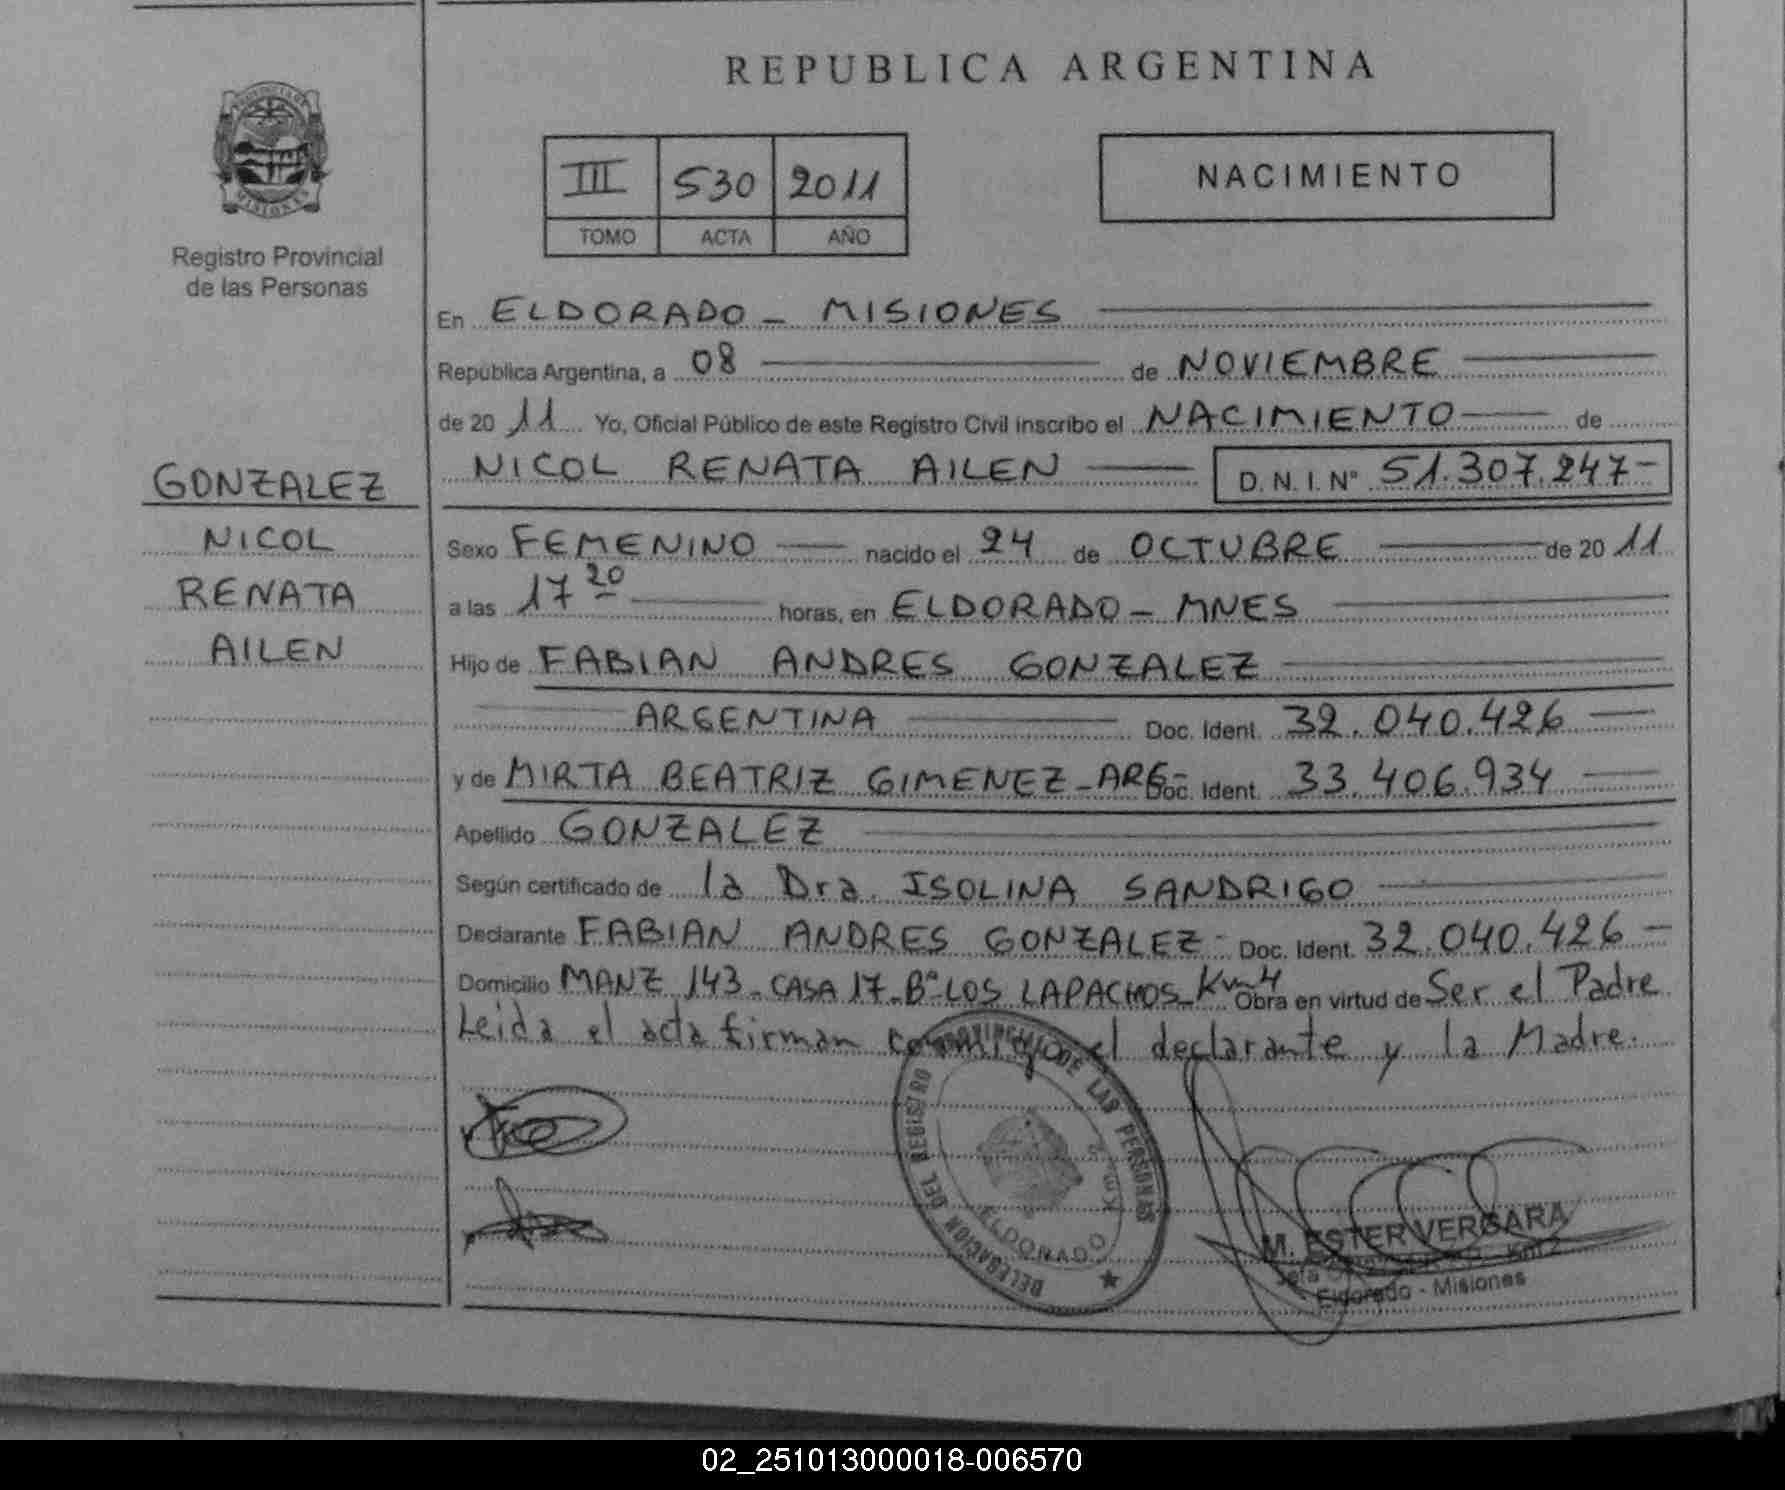 REPUBLICA ARGENTINA
PROVINCIA DE
MISIONES
Registro Provincial
de las Personas
III 530 2011
TOMO ACTA AÑO
NACIMIENTO
En ELDORADO - MISIONES
República Argentina, a 08 de NOVIEMBRE
de 20 11 Yo, Oficial Público de este Registro Civil inscribo el NACIMIENTO de
NICOL RENATA AILEN D.N.I.Nº 51.307.247-
GONZALEZ
NICOL
RENATA
AILEN
Sexo FEMENINO nacido el 24 de OCTUBRE de 20 11
a las 17 20 horas, en ELDORADO - MNES
Hijo de FABIAN ANDRES GONZALEZ
ARGENTINA Doc. Ident. 32.040.426
y de MIRTA BEATRIZ GIMENEZ - ARG- Doc. Ident. 33.406.934
Apellido GONZALEZ
Según certificado de la Dra. ISOLINA SANDRIGO
Declarante FABIAN ANDRES GONZALEZ- Doc. Ident. 32.040.426-
Domicilio MANZ 143- CASA 17- Bº LOS LAPACHOS- Km 4 Obra en virtud de Ser el Padre
Leida el acta firman conmigo el declarante y la Madre.
DELEGACION DEL REGISTRO PROVINCIAL DE LAS PERSONAS
Km. 2
ELDORADO
M. ESTER VERGARA
Jefa Km 2
Eldorado - Misiones
02_251013000018-006570